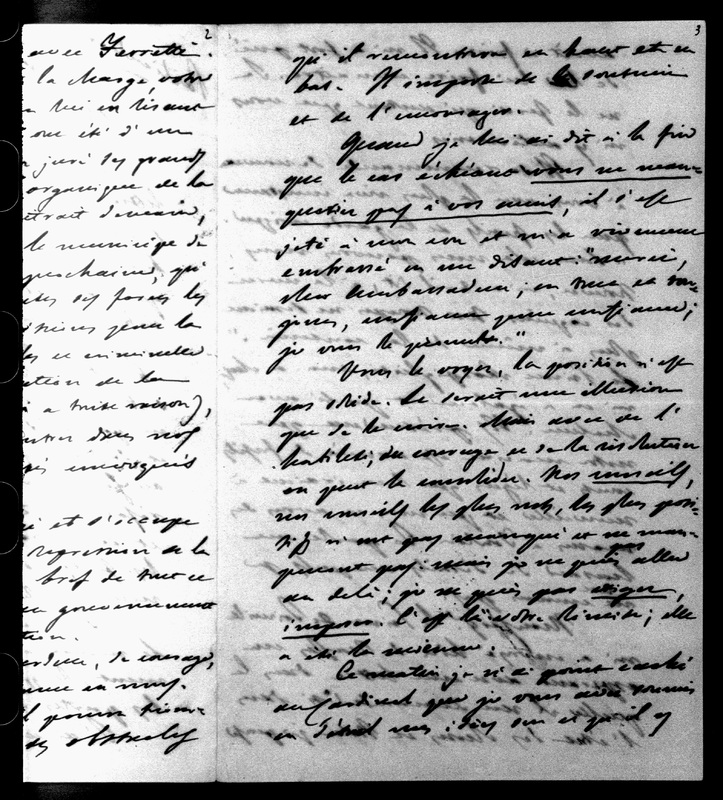 2
avec Ferretti.
la charge votre
lui en lisant
ont été d'un
juré les grands
organique de la
le municipe de
prochaine, qui
forces les
la
et criminelle
de la
a toute raison),
dans nos
et s'occupe
repression de la
bref de tout ce
gouvernement
de courage,
en nous.
il pourra
obstacles
3
qu'il rencontrera en haut et en
bas. Il importe de le soutenir
et de l'encourager.
Quand je lui ai dit à la fin
que le cas échéant vous ne man-
quetier pas à vos amis, il s'est
jeté à mon cou et m'a vivement
embrassé en me disant: "merci,
cher Ambassadeur; en tout et tou-
jours, confiance pour confiance;
je vous le promets."
Vous le voyez, la position n'est
pas solide. Ce serait une illusion
que de le croire. Mais avec de l'
habileté, du courage et de la résolution
on peut le consolider. Nos conseils,
nos conseils les plus nets, les plus posi-
tifs n'ont pas manqué et ne man-
queront pas: mais je ne puis pas aller
au delà; je ne puis pas exiger,
imposer. C'est là votre limite; elle
a été la mienne.
Ce matin je n'ai point caché
au Cardinal que je vous avais soumis
en détail mes idées sur et qu'il y